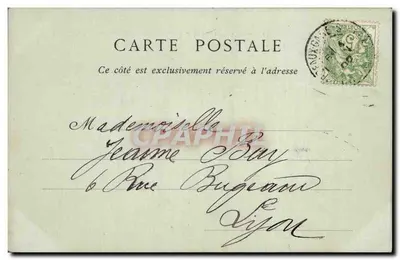 CARTE POSTALE
Ce côté est exclusivement réservé à l'adresse
Mademoiselle
Jeanne Bay
6 Rue Bugeaud
Lyon